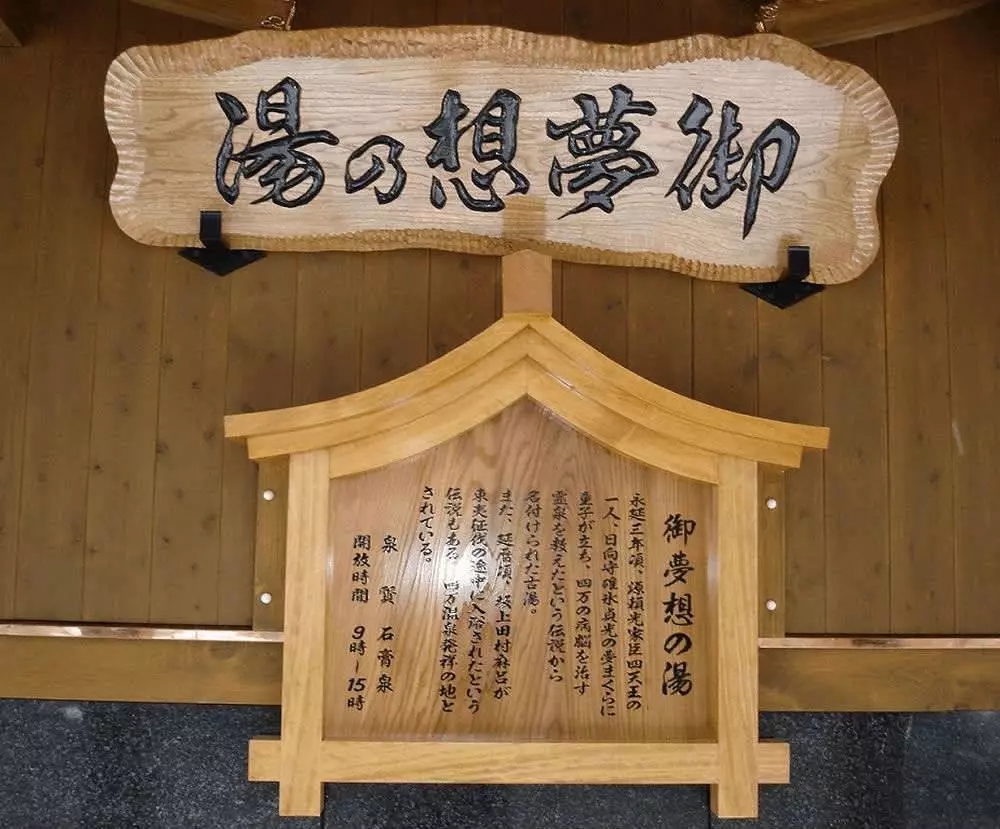 御夢想の湯
御夢想の湯
永延三年頃、源頼光家臣四天王の
一人、日向守碓氷貞光の夢まくらに
童子が立ち、四万の病脳を治す
霊泉を教えたという伝説から
名付けられた古湯。
また、延暦頃、坂上田村麻呂が
東夷征伐の途中に入浴されたという
伝説もある。四万温泉発祥の地と
されている。
泉質 石膏泉
開放時間 9時~15時